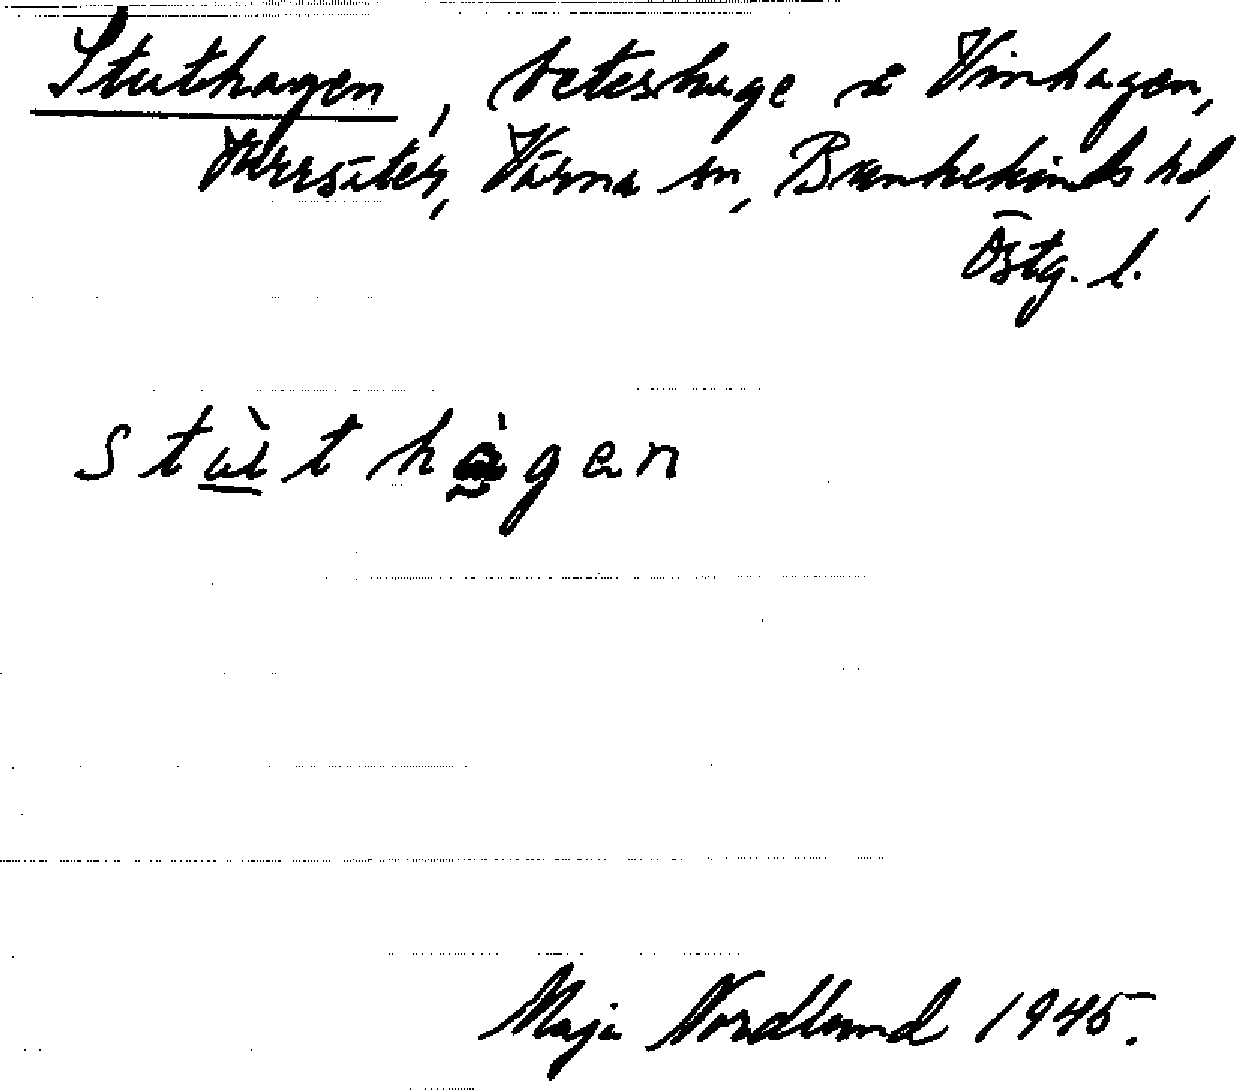 Stuthagen, beteshage i Vinhagen,
Värna sn, Bankekinds hd,
Östg. l.
stùthagen
Maja Nordlund 1945.